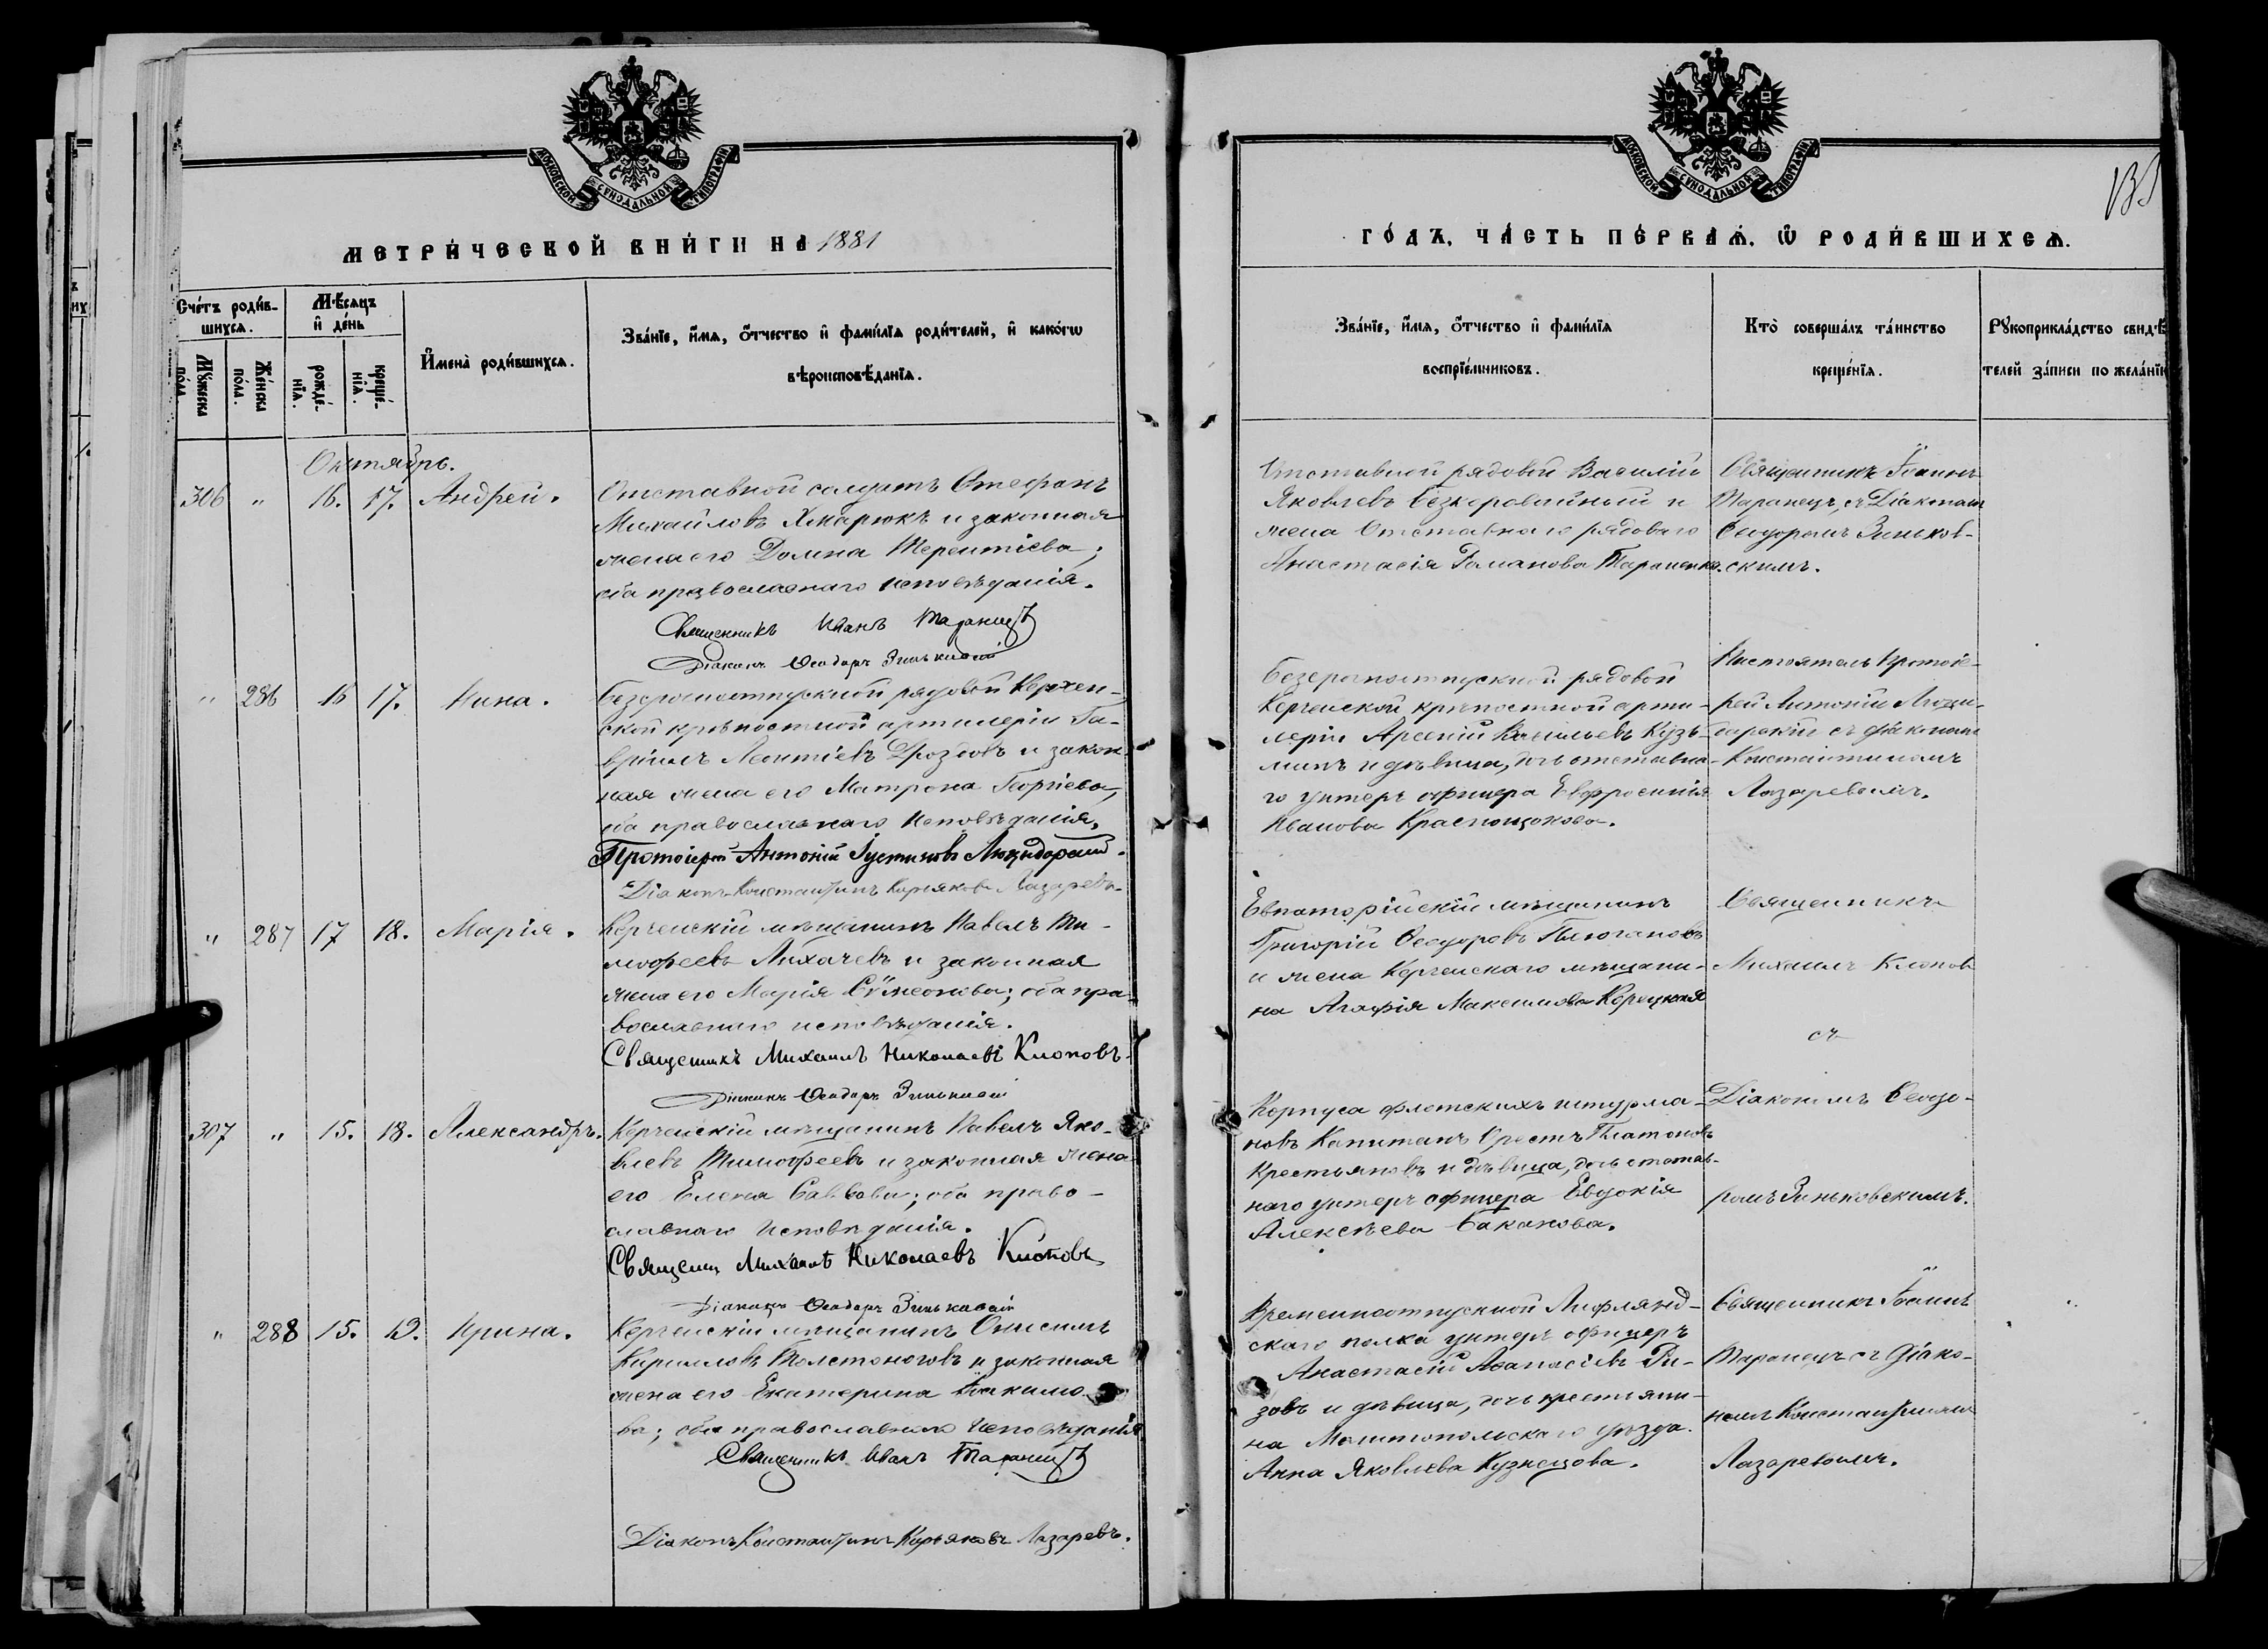 МОСКОВСКОЙ СѴНОДАЛЬНОЙ ТИПОГРАФІИ
МЕТРИ́ЧЕСКОЙ КНИ́ГИ НА 1881
Сче́тъ роди́в-
шихсѧ.
Мѣ́сѧцъ
и҆ де́нь
Мꙋ́жеска
по́ла.
Же́нска
по́ла.
рожде́-
нїѧ.
креще́-
нїѧ.
И҆мена̀ роди́вшихсѧ.
Зва́нїе, и҆́мѧ, ѻ҆́тчество и҆ фамі́лїѧ роди́телей, и҆ како́гѡ
вѣроисповѣ́данїѧ.
Октябрь.
306 " 16. 17. Андрей.
Отставной солдатъ Стефанъ
Михайловъ Хмарюкъ и законная
жена его Домна Терентіева;
оба православнаго исповѣданія.
Священникъ Иванъ Таранецъ
Діаконъ Ѳеодоръ Зиньковскій
" 286 16 17. Нина.
Безсрочноотпускной рядовой Керчен-
ской крѣпостной артилеріи Га-
вріилъ Леонтіевъ Дроздовъ и закон-
ная жена его Матрона Георгіева,
оба православнаго исповѣданія.
Протоіерей Антоній Іустиновъ Люцидарскій.
Діаконъ Константинъ Курьяковъ Лазаревъ.
" 287 17 18. Марія.
Керченскій мѣщанинъ Павелъ Ти-
мофеевъ Лихачевъ и законная
жена его Марія Сѵмеонова; оба пра-
вославнаго исповѣданія.
Священникъ Михаилъ Николаевъ Клоповъ.
Діаконъ Ѳеодоръ Зиньковскій
307 " 15. 18. Александръ.
Керченскій мѣщанинъ Павелъ Яко-
влевъ Тимофеевъ и законная жена
его Елена Саввова; оба право-
славнаго исповѣданія.
Священн Михаилъ Николаевъ Клоповъ
Діаконъ Ѳеодоръ Зиньковскій
" 288 15. 19. Ирина.
Керченскій мѣщанинъ Онисимъ
Кирилловъ Толстоноговъ и законная
жена его Екатерина Іоакимо
ва; оба православнаго исповѣданія
Священникъ Иванъ Таранецъ
Діаконъ Константинъ Курьяковъ Лазаревъ.
МОСКОВСКОЙ СѴНОДАЛЬНОЙ ТИПОГРАФІИ
ГО́ДЪ, ЧА́СТЬ ПЕ́РВАѦ, Ѽ РОДИ́ВШИХСѦ.
Зва́нїе, и҆́мѧ, ѻ҆́тчество и҆ фамі́лїѧ
воспрїе́мниковъ.
Кто̀ соверша́лъ та́инство
креще́нїѧ.
Рꙋкоприкла́дство свидѣ́
телей за́писи по жела́нїю
Отставной рядовой Василій
Яковлевъ Безкоровайный и
жена отставнаго рядоваго
Анастасія Романова Тараненко.
Священникъ Іоаннъ
Таранецъ, съ Діакономъ
Ѳеодоромъ Зиньков-
скимъ.
Безсрочноотпускной рядовой
Керченской крѣпостной арти-
леріи Арсеній Васильевъ Кузь-
минъ и дѣвица, дочь отставна-
го унтеръ офицера Евфросинія
Иванова Краснощокова.
Настоятель Протоіе-
рей Антоній Люци-
дарскій съ діакономъ
Константиномъ
Лазаревымъ.
Евпаторійскій мѣщанинъ
Григорій Ѳеодоровъ Плюгановъ
и жена Керченскаго мѣщани-
на Агафія Максимова Корецкая
Священникъ
Михаилъ Клоповъ
съ
Корпуса флотскихъ штурма-
новъ Капитанъ Орестъ Платоновъ
Крестьяновъ и дѣвица, дочь отстав-
наго унтеръ офицера Евдокія
Алексѣева Баканова.
Діакономъ Ѳеодо-
ромъ Зиньковскимъ.
Временноотпускной Лифлянд-
скаго полка унтеръ офицеръ
Анастасій Аѳанасіевъ Ри-
зовъ и дѣвица, дочь крестьяни-
на Мелитопольскаго уѣзда.
Анна Яковлева Кузнецова.
Священникъ Іоаннъ
Таранецъ съ Діако-
номъ Константиномъ
Лазаревымъ.